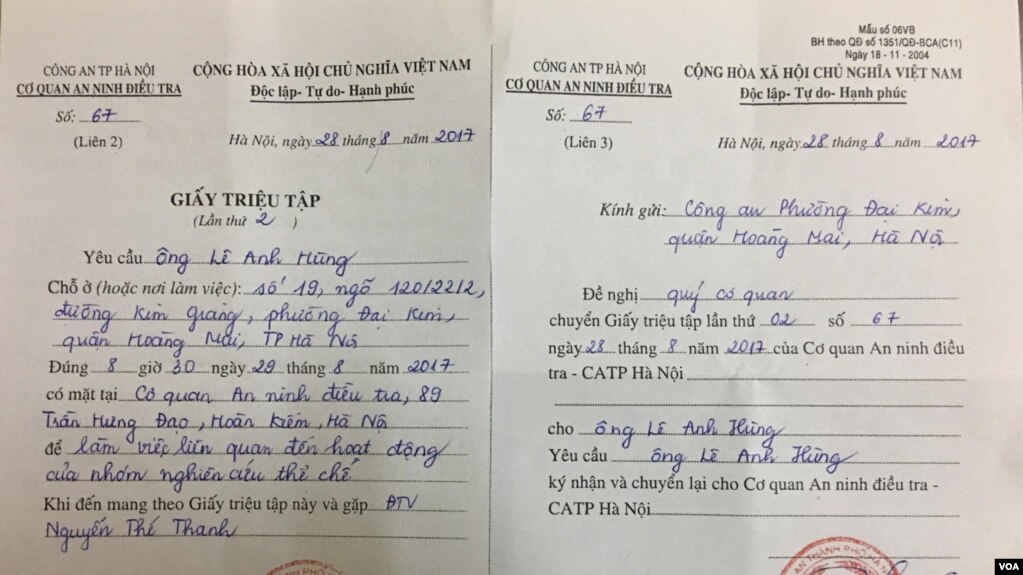 CÔNG AN TP HÀ NỘI
CƠ QUAN AN NINH ĐIỀU TRA
Số: 67
(Liên 2)
CỘNG HÒA XÃ HỘI CHỦ NGHĨA VIỆT NAM
Độc lập- Tự do- Hạnh phúc
Hà Nội, ngày 28 tháng 8 năm 2017
GIẤY TRIỆU TẬP
(Lần thứ 2 )
Yêu cầu ông Lê Anh Hùng
Chỗ ở (hoặc nơi làm việc): số 19, ngõ 120/22/2,
đường Kim Giang, phường Đại Kim,
quận Hoàng Mai, TP Hà Nộ
Đúng 8 giờ 30 ngày 29 tháng 8 năm 2017
có mặt tại Cơ quan An ninh điều tra, 89
Trần Hưng Đạo, Hoàn Kiếm, Hà Nộ
để làm việc liên quan đến hoạt động
của nhóm nghiên cứu thể chế
Khi đến mang theo Giấy triệu tập này và gặp ĐTV
Nguyễn Thế Thanh
Mẫu số 06VB
BH theo QĐ số 1351/QĐ-BCA(C11)
Ngày 18 - 11 - 2004
CÔNG AN TP HÀ NỘI
CƠ QUAN AN NINH ĐIỀU TRA
Số: 67
(Liên 3)
CỘNG HÒA XÃ HỘI CHỦ NGHĨA VIỆT NAM
Độc lập- Tự do- Hạnh phúc
Hà Nội, ngày 28 tháng 8 năm 2017
Kính gửi: Công an Phường Đại Kim,
quận Hoàng Mai, Hà Nộ
Đề nghị quý cơ quan
chuyển Giấy triệu tập lần thứ 02 số 67
ngày 28 tháng 8 năm 2017 của Cơ quan An ninh điều
tra - CATP Hà Nội
cho ông Lê Anh Hùng
Yêu cầu ông Lê Anh Hùng
ký nhận và chuyển lại cho Cơ quan An ninh điều tra -
CATP Hà Nội
AN THÀNH PHỐ HÀ N
VOA